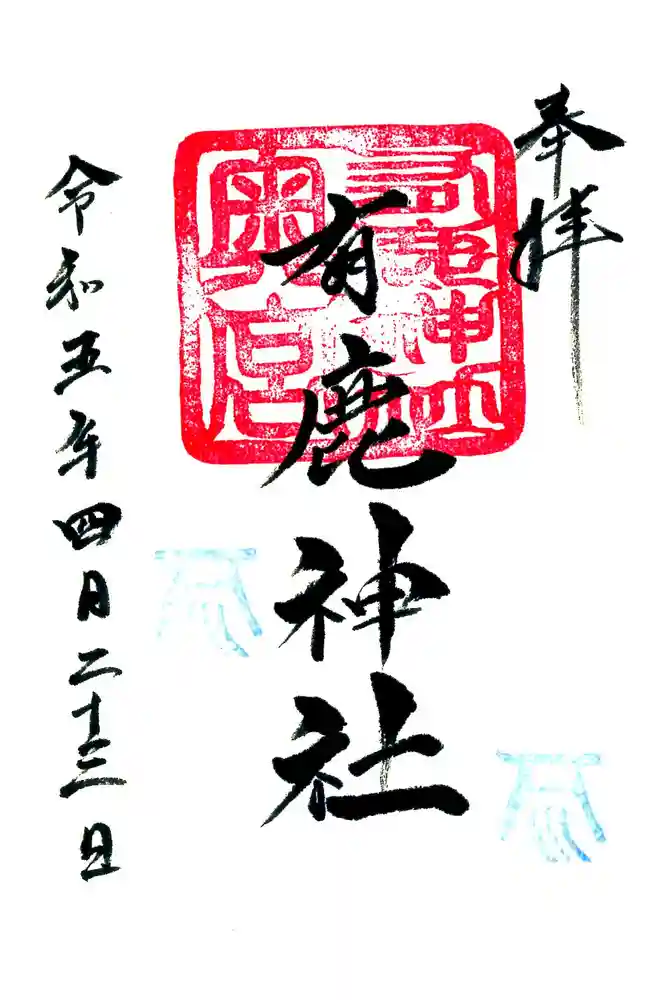 奉拝
有鹿神社
奥宮
令和五年四月二十三日